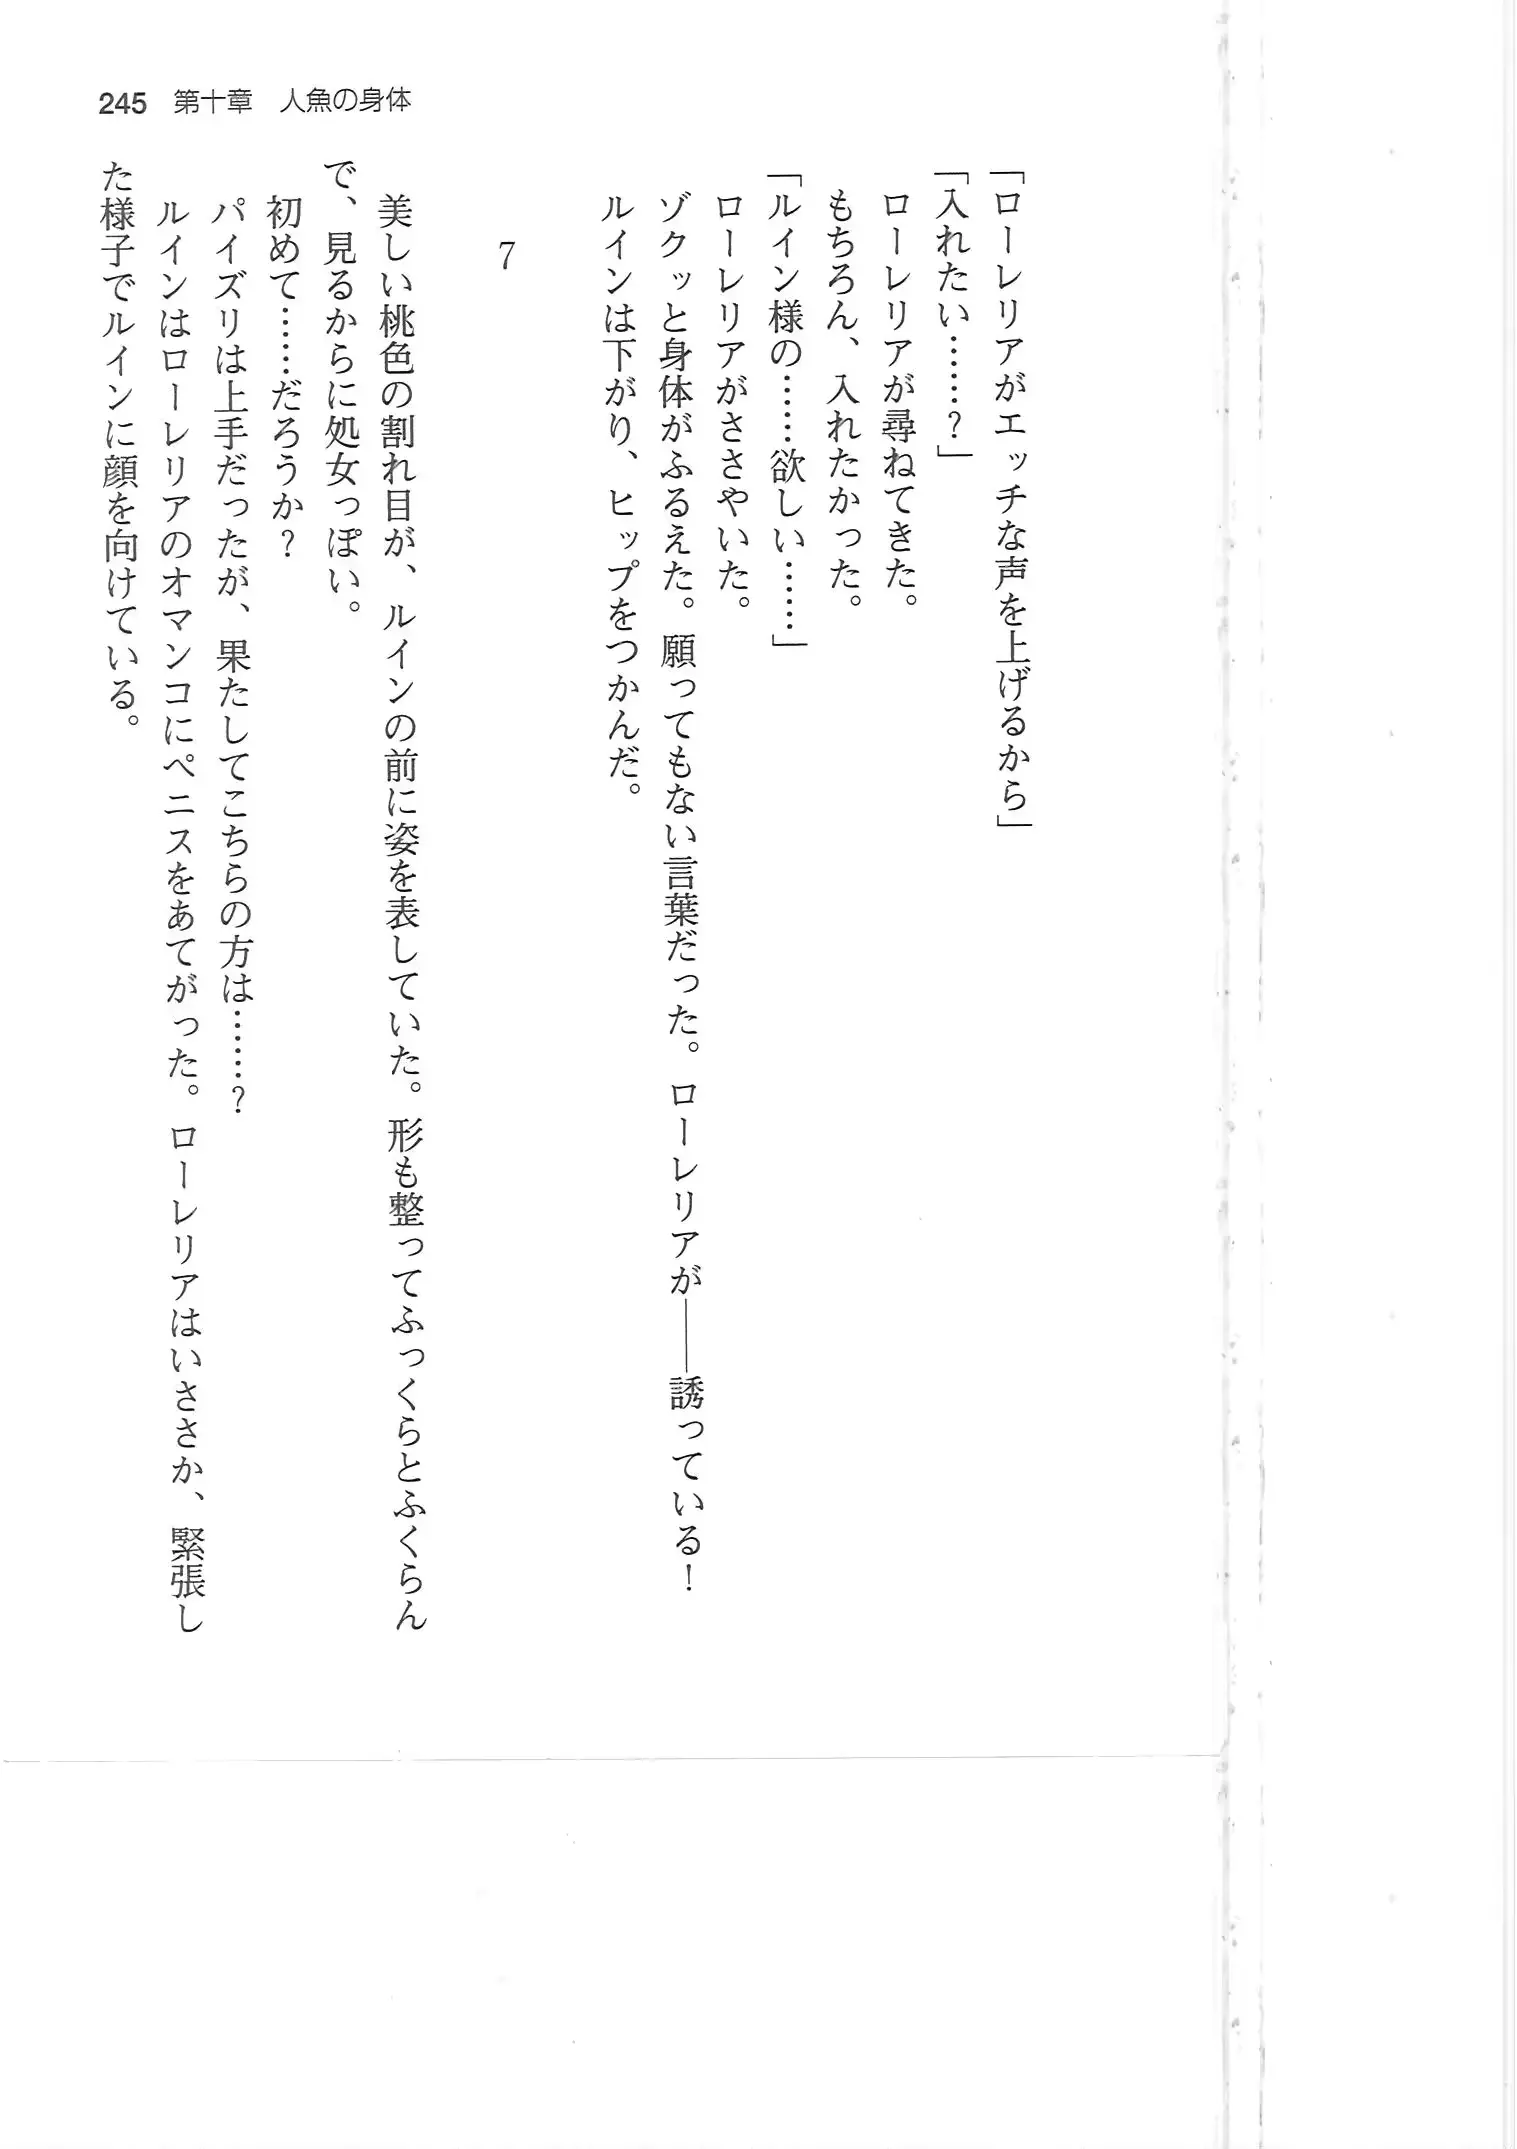 245 第十章 人魚の身体
「ローレリアがエッチな声を上げるから」
「入れたい……?」
ローレリアが尋ねてきた。
もちろん、入れたかった。
「ルイン様の……欲しい……」
ローレリアがささやいた。
ゾクッと身体がふるえた。願ってもない言葉だった。ローレリアが――誘っている!
ルインは下がり、ヒップをつかんだ。
7
美しい桃色の割れ目が、ルインの前に姿を表していた。形も整ってふっくらとふくらん
で、見るからに処女っぽい。
初めて……だろうか?
パイズリは上手だったが、果たしてこちらの方は……?
ルインはローレリアのオマンコにペニスをあてがった。ローレリアはいささか、緊張し
た様子でルインに顔を向けている。